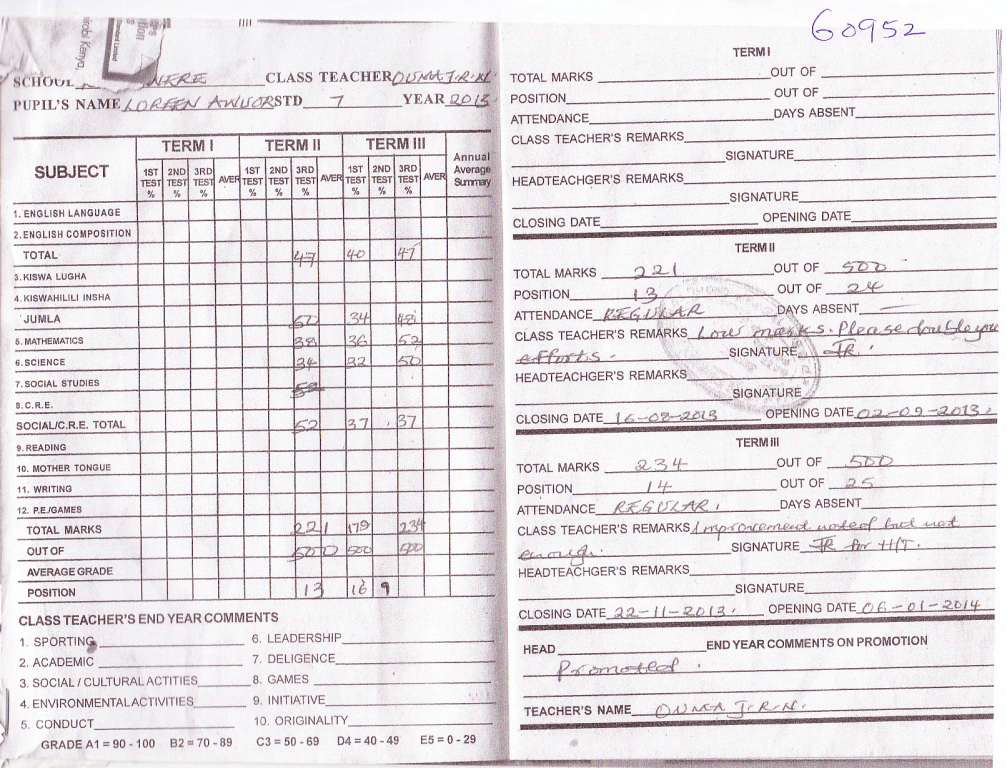 60952
SCHOOL NERE CLASS TEACHER OUMA J.R.N.
PUPIL'S NAME LOREEN AWUOR STD 7 YEAR 2013
SUBJECT TERM I TERM II TERM III Annual Average Summary
1ST TEST % 2ND TEST % 3RD TEST % AVER 1ST TEST % 2ND TEST % 3RD TEST % AVER 1ST TEST % 2ND TEST % 3RD TEST % AVER
1. ENGLISH LANGUAGE
2. ENGLISH COMPOSITION
TOTAL 47 40 47
3. KISWA LUGHA
4. KISWAHILILI INSHA
JUMLA 50 34 48
5. MATHEMATICS 38 36 52
6. SCIENCE 34 32 50
7. SOCIAL STUDIES
8. C.R.E.
SOCIAL/C.R.E. TOTAL 52 37 37
9. READING
10. MOTHER TONGUE
11. WRITING
12. P.E./GAMES
TOTAL MARKS 221 179 234
OUT OF 500 500 500
AVERAGE GRADE
POSITION 13 16 9
CLASS TEACHER'S END YEAR COMMENTS
1. SPORTING 6. LEADERSHIP
2. ACADEMIC 7. DELIGENCE
3. SOCIAL / CULTURAL ACTITIES 8. GAMES
4. ENVIRONMENTAL ACTIVITIES 9. INITIATIVE
5. CONDUCT 10. ORIGINALITY
GRADE A1 = 90 - 100 B2 = 70 - 89 C3 = 50 - 69 D4 = 40 - 49 E5 = 0 - 29
TERM I
TOTAL MARKS OUT OF
POSITION OUT OF
ATTENDANCE DAYS ABSENT
CLASS TEACHER'S REMARKS
SIGNATURE
HEADTEACHGER'S REMARKS
SIGNATURE
CLOSING DATE OPENING DATE
TERM II
TOTAL MARKS 221 OUT OF 500
POSITION 13 OUT OF 24
ATTENDANCE REGULAR DAYS ABSENT
CLASS TEACHER'S REMARKS Low marks. Please double you
efforts. SIGNATURE JR.
HEADTEACHGER'S REMARKS
SIGNATURE
CLOSING DATE 16-08-2013 OPENING DATE 02-09-2013.
TERM III
TOTAL MARKS 234 OUT OF 500
POSITION 14 OUT OF 25
ATTENDANCE REGULAR. DAYS ABSENT
CLASS TEACHER'S REMARKS Improvement noted but not
enough. SIGNATURE JR for H/T.
HEADTEACHGER'S REMARKS
SIGNATURE
CLOSING DATE 22-11-2013. OPENING DATE 06-01-2014
HEAD END YEAR COMMENTS ON PROMOTION
Promoted.
TEACHER'S NAME OUMA J.R.N.